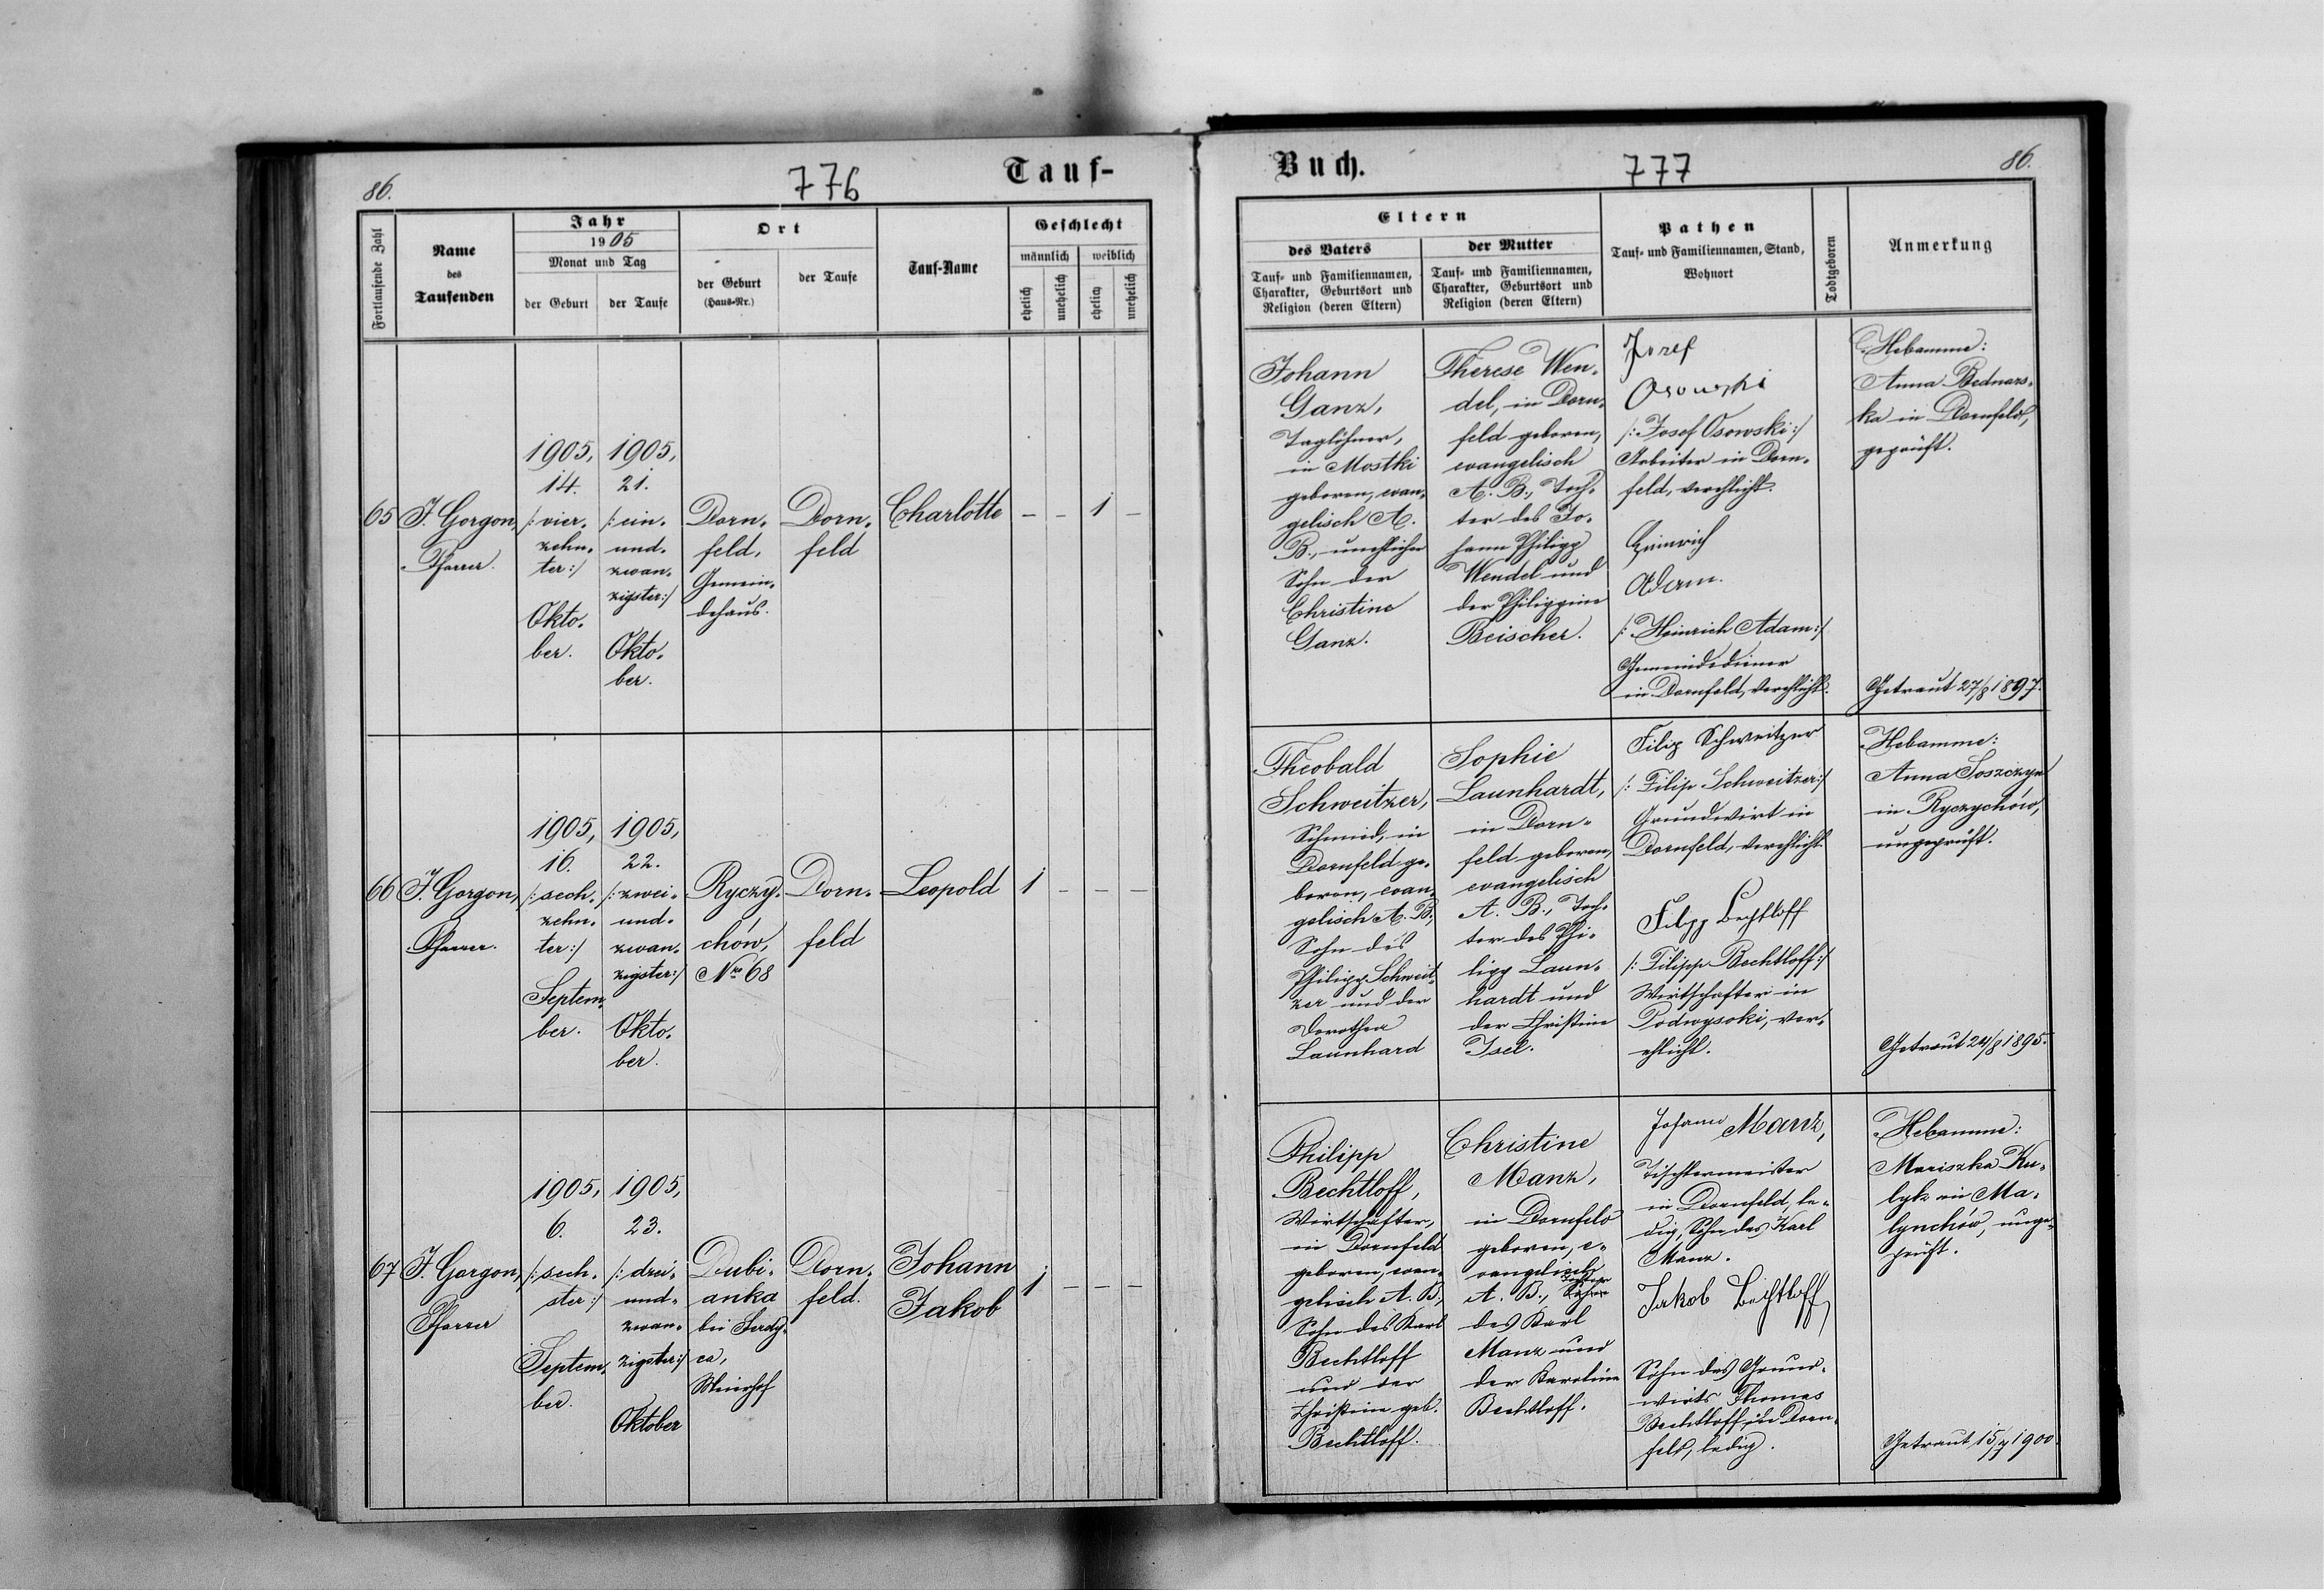 86.
776
Tauf-
Fortlaufende Zahl
Name
des
Taufenden
Jahr
1905
Monat und Tag
der Geburt
der Taufe
Ort
der Geburt
(Haus-Nr.)
der Taufe
Tauf-Name
Geschlecht
männlich
weiblich
ehelich
unehelich
ehelich
unehelich
65
J. Gorgon,
Pfarrer.
1905,
14.
/: vier-
zehn-
ter :/
Okto-
ber.
1905,
21.
/: ein-
und-
zwan-
zigster :/
Okto-
ber.
Dorn-
feld,
Gemein-
dehaus.
Dorn-
feld
Charlotte
- - 1 -
66
J. Gorgon,
Pfarrer.
1905,
16.
/: sech-
zehn-
ter :/
Septem-
ber.
1905,
22.
/: zwei-
und-
zwan-
zigster :/
Okto-
ber.
Ryczy-
chów,
Nro 68
Dorn-
feld
Leopold
1 - - -
67
J. Gorgon,
Pfarrer
1905,
6.
/: sech-
ster :/
Septem-
ber.
1905,
23.
/: drei-
und-
zwan-
zigster :/
Oktober
Dubi-
anka
bei Serdy-
ca,
Meierhof
Dorn-
feld.
Johann
Jakob
1 - - -
Buch.
777
86.
Eltern
des Vaters
Tauf- und Familiennamen,
Charakter, Geburtsort und
Religion (deren Eltern)
der Mutter
Tauf- und Familiennamen,
Charakter, Geburtsort und
Religion (deren Eltern)
Pathen
Tauf- und Familiennamen, Stand,
Wohnort
Todtgeboren
Anmerkung
Johann
Ganz,
Taglöhner,
in Mostki
geboren, evan-
gelisch A.
B., unehlicher
Sohn der
Christine
Ganz.
Therese Wen-
del, in Dorn-
feld geboren,
evangelisch
A. B., Toch-
ter des Jo-
hann Philipp
Wendel und
der Philippine
Beischer.
Jozef
Osowski
/: Josef Osowski :/
Arbeiter in Dorn-
feld, verehlicht.
Heinrich
Adam.
/: Heinrich Adam :/
Gemeindediener
in Dornfeld, verehlicht.
Hebamme:
Anna Bednars-
ka in Dornfeld,
geprüft.
Getraut 27/8 1897.
Theobald
Schweitzer,
Schmied, in
Dornfeld ge-
boren, evan-
gelisch A. B.,
Sohn des
Philipp Schweit-
zer und der
Dorothea
Launhard
Sophie
Launhardt,
in Dorn-
feld geboren,
evangelisch
A. B., Toch-
ter des Phi-
lipp Laun-
hardt und
der Christine
Isel.
Filip Schweitzer
/: Filip Schweitzer :/
Grundwirt in
Dornfeld, verehlicht.
Filipp Bechtloff
/: Filipp Bechtloff :/
Wirtschafter in
Podwysoki, ver-
ehlicht.
Hebamme:
Anna Soszczyn
in Ryczychów,
ungeprüft.
Getraut 24/8 1895.
Philipp
Bechtloff,
Wirtschafter,
in Dornfeld
geboren, evan-
gelisch A. B.,
Sohn des Karl
Bechtloff
und der
Christine geb.
Bechtloff.
Christine
Manz,
in Dornfeld
geboren, e-
vangelisch
A. B., Tochter
des Karl
Manz und
der Karoline
Bechtloff.
Johann Manz,
Tischlermeister
in Dornfeld, le-
dig, Sohn des Karl
Manz.
Jakob Bechtloff,
Sohn des Grund-
wirts Thomas
Bechtloff in Dorn-
feld, ledig.
Hebamme:
Mariszka Ku-
lyk in Ma-
lynchów, unge-
prüft.
Getraut 15/7 1900